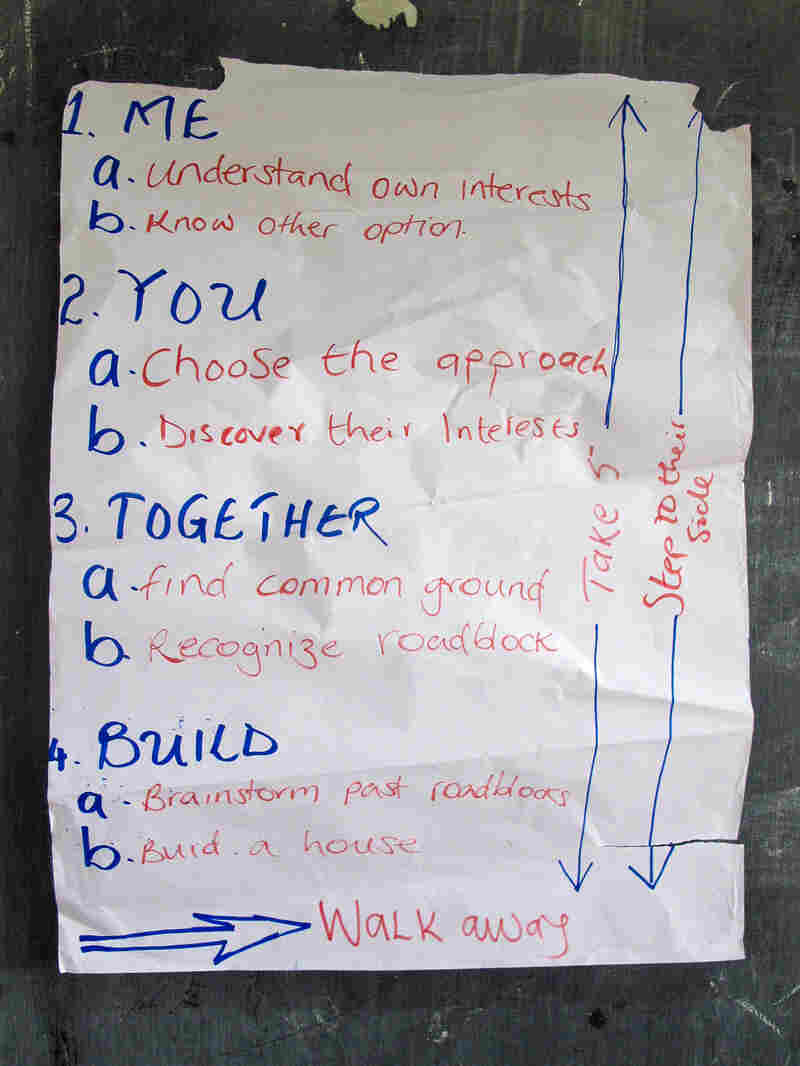 1. ME
a. Understand own interests
b. Know other option.
2. YOU
a. Choose the approach
b. Discover their Interests
3. TOGETHER
a. find common ground
b. Recognize roadblock
4. BUILD
a. Brainstorm past roadblocks
b. Buid a house
Walk away
Take 5
Step to their
side